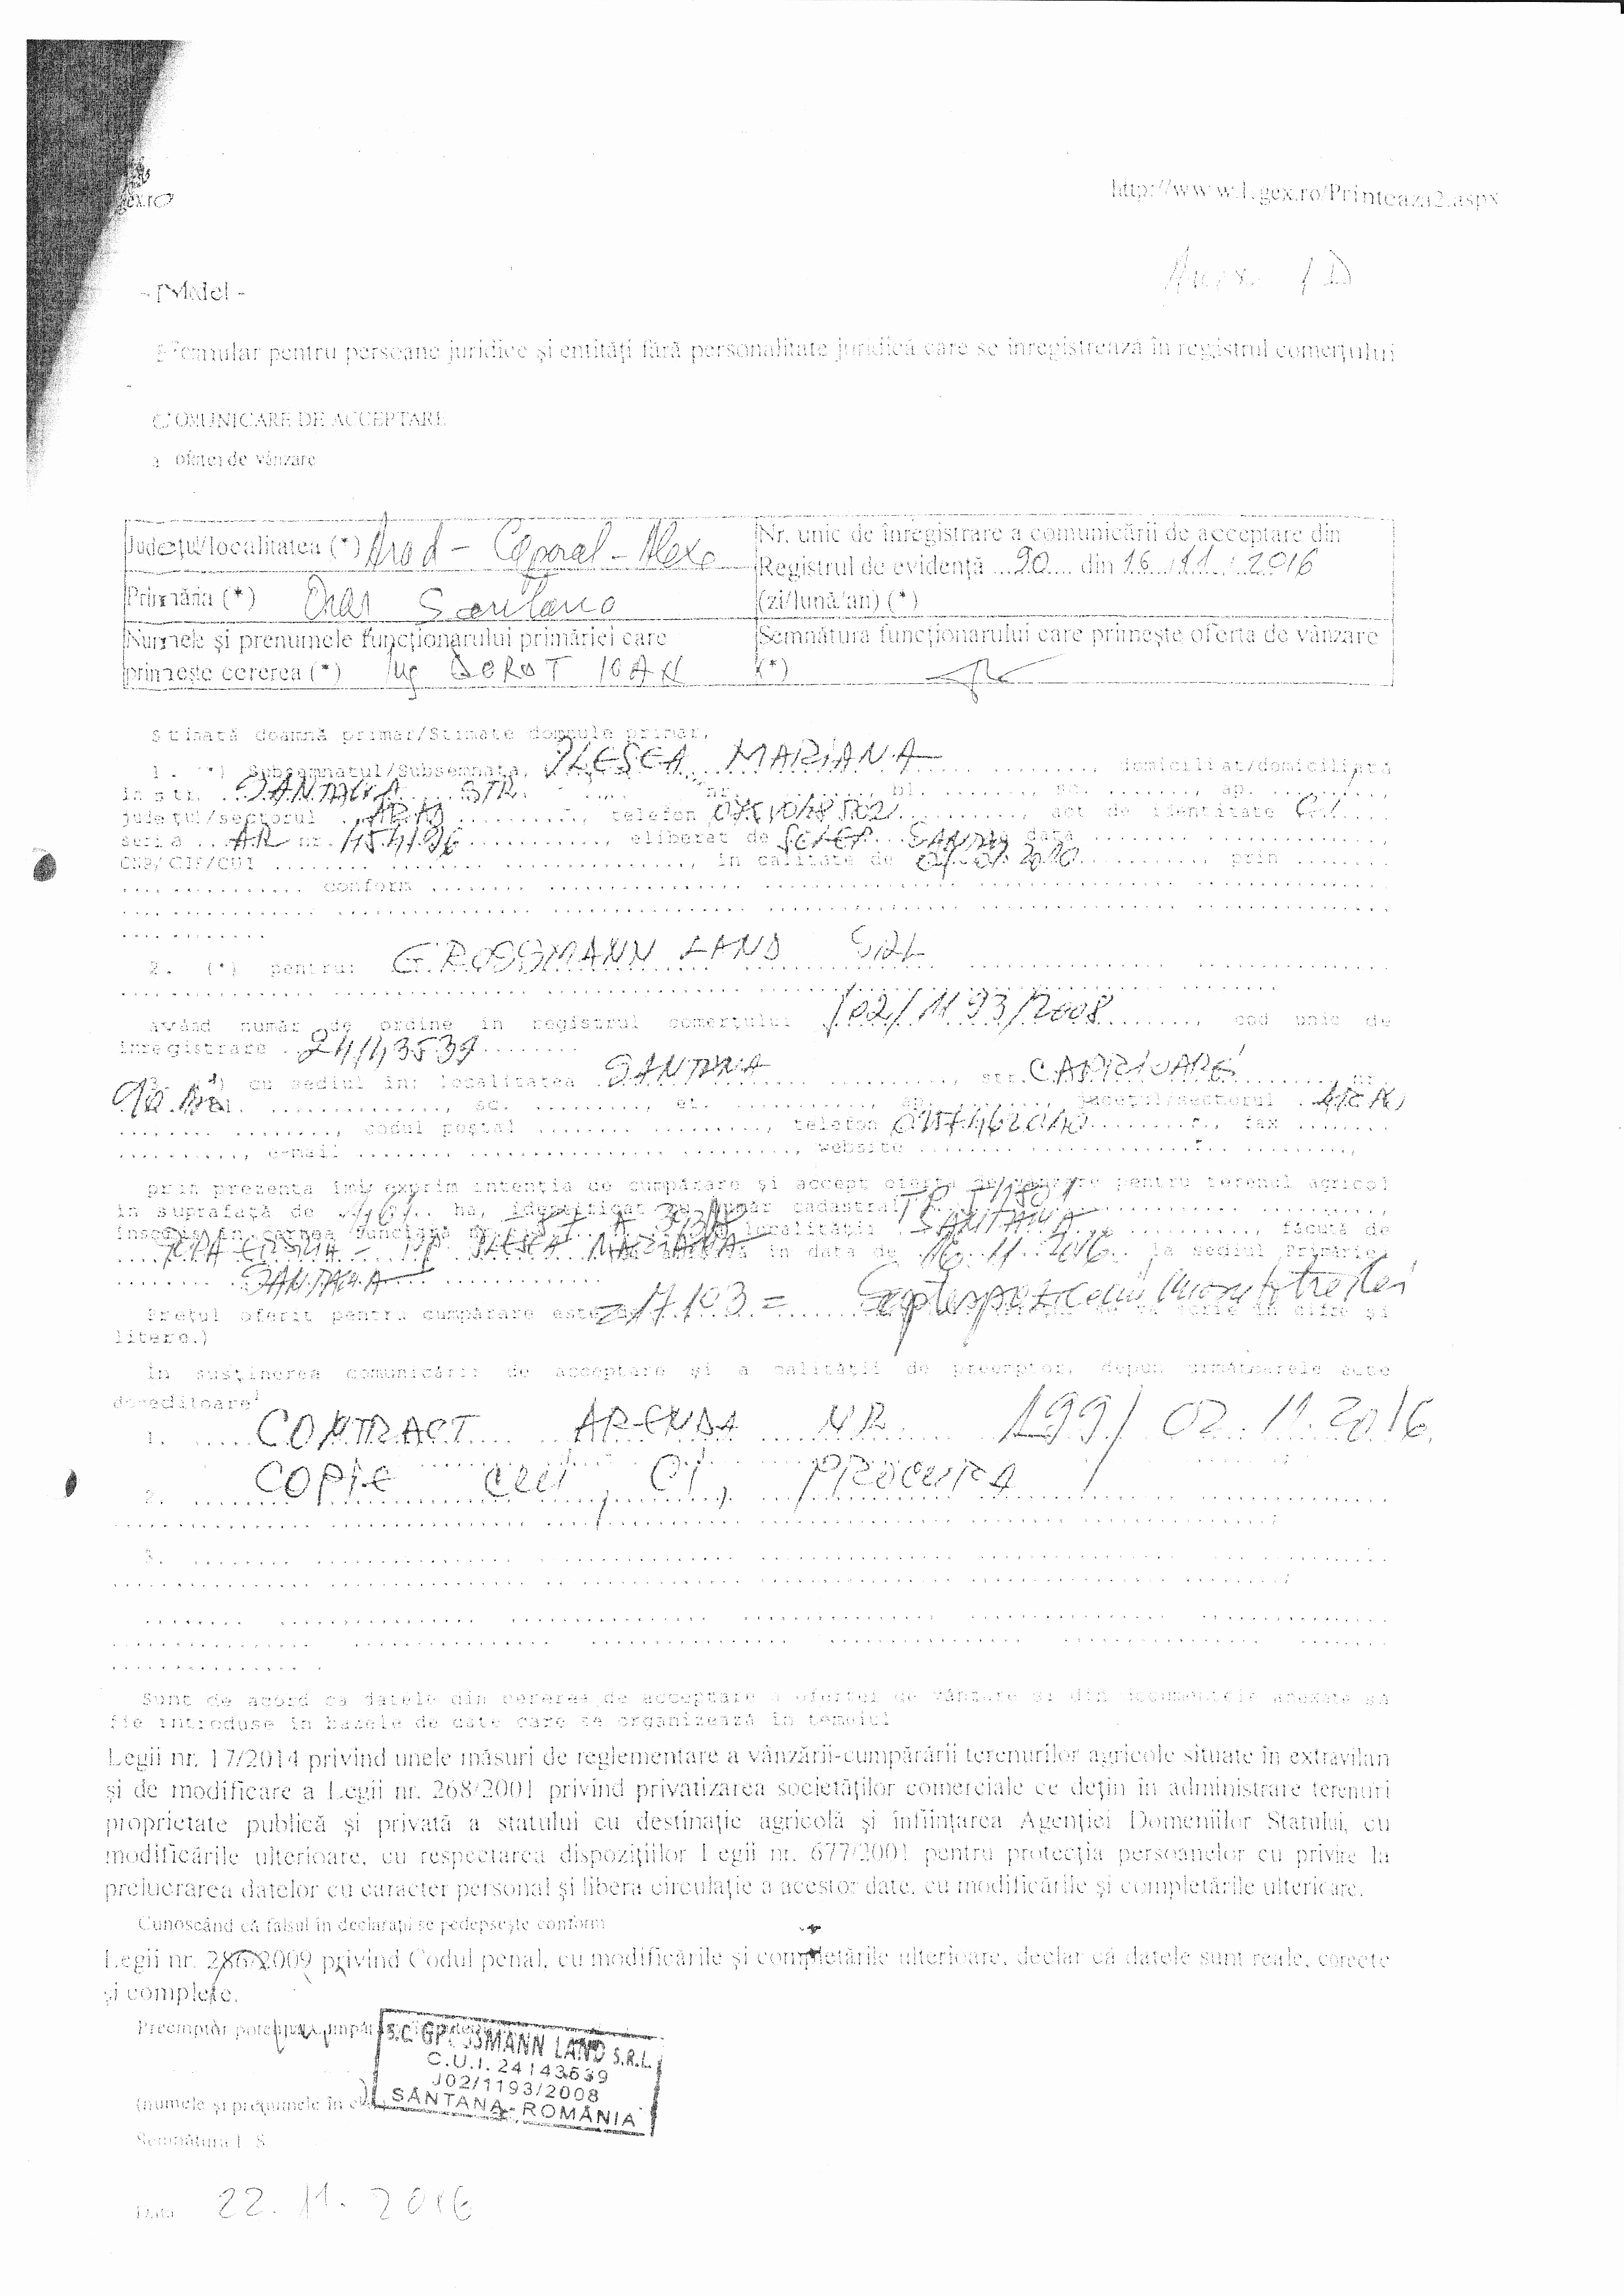 http://www.legex.ro/Printeaza2.aspx
Anexa 1D
- Model -
Formular pentru persoane juridice şi entităţi fără personalitate juridică care se înregistrează în registrul comerţului
COMUNICARE DE ACCEPTARE
a ofertei de vânzare
Judeţul/localitatea (*) Arad - Caporal - Alexa
Nr. unic de înregistrare a comunicării de acceptare din
Registrul de evidenţă ...90.... din 16../11../.2016
(zi/lună/an) (*)
Primăria (*) Oraş Santana
Numele şi prenumele funcţionarului primăriei care
primeşte cererea (*) Ing IOAN
Semnătura funcţionarului care primeşte oferta de vânzare
(*)
Stimată doamnă primar/Stimate domnule primar,
1. (*) Subsemnatul/Subsemnata, PLESEA MARIANA, domiciliat/domiciliată
în str. SANTANA STR. nr. ......., bl. ......., sc. ......., ap. .........,
judeţul/sectorul ARAD, telefon, act de identitate C.I.
seria AR nr. 454196, eliberat de SCLEP SANTANA data
CNP/CIF/CUI, în calitate de, prin ........
conform
2. (*) pentru: GROSSMANN LAND SRL
având număr de ordine în registrul comerţului J02/1193/2008, cod unic de
înregistrare 24143539
3. (*) cu sediul în: localitatea SANTANA, str. CAPRIOAREI, nr.
bl. ............., sc. ........., et. ..........., ap. ......., judeţul/sectorul ARAD
codul poştal, telefon, fax ........
e-mail, website
prin prezenta îmi exprim intenţia de cumpărare şi accept oferta de vânzare pentru terenul agricol
în suprafaţă de ha, identificat cu număr cadastral
înscris în cartea funciară localităţii SANTANA, făcută de
PLESEA MARIANA în data de 16.11.2016 la sediul Primăriei
SANTANA
Preţul oferit pentru cumpărare este = 17103 =
litere.)
În susţinerea comunicării de acceptare şi a calităţii de preemptor, depun următoarele acte
doveditoare
1. CONTRACT ARENDA NR 199/02.11.2016
2. COPIE CUI, CI, PROCURA
3.
Sunt de acord ca datele din cererea de acceptare a ofertei de vânzare şi din documentele anexate să
fie introduse în bazele de date care se organizează în temeiul
Legii nr. 17/2014 privind unele măsuri de reglementare a vânzării-cumpărării terenurilor agricole situate în extravilan
şi de modificare a Legii nr. 268/2001 privind privatizarea societăţilor comerciale ce deţin în administrare terenuri
proprietate publică şi privată a statului cu destinaţie agricolă şi înfiinţarea Agenţiei Domeniilor Statului, cu
modificările ulterioare, cu respectarea dispoziţiilor Legii nr. 677/2001 pentru protecţia persoanelor cu privire la
prelucrarea datelor cu caracter personal şi libera circulaţie a acestor date, cu modificările şi completările ulterioare.
Cunoscând că falsul în declaraţii se pedepseşte conform
Legii nr. 286/2009 privind Codul penal, cu modificările şi completările ulterioare, declar că datele sunt reale, corecte
şi complete.
Preemptor
S.C. GROSSMANN LAND S.R.L.
C.U.I. 24143539
J02/1193/2008
SÂNTANA - ROMÂNIA
(numele şi prenumele în
Semnătura L.S.
Data 22.11.2016